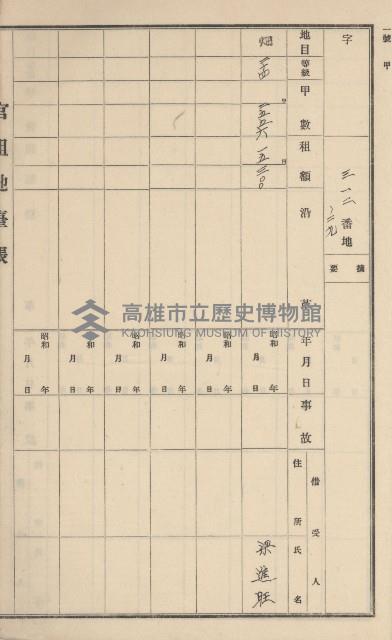 一號 甲
字
三一二番地
摘要
地目 等級 甲數 租額 沿革 年月日 事故 借受人 住所 氏名
畑
甲
円
昭和 年 月 日
梁進旺
昭和 年 月 日
昭和 年 月 日
昭和 年 月 日
昭和 年 月 日
昭和 年 月 日
官租地臺帳
高雄市立歷史博物館
KAOHSIUNG MUSEUM OF HISTORY